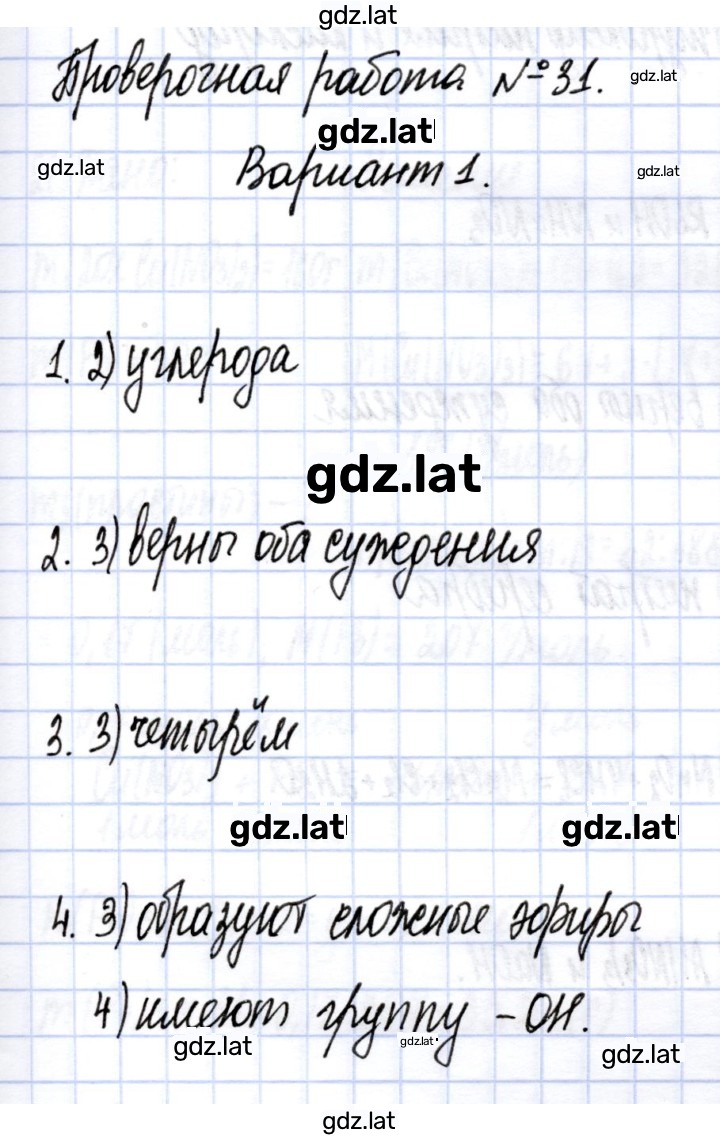 gdz.lat
Проверочная работа №31.
gdz.lat
gdz.lat
gdz.lat
Вариант 1.
gdz.lat
1. 2) углерода
gdz.lat
2. 3) верны оба суждения
3. 3) четырём
gdz.lat
gdz.lat
4. 3) образуют сложные эфиры
4) имеют группу -OH.
gdz.lat
gdz.lat
gdz.lat
gdz.lat